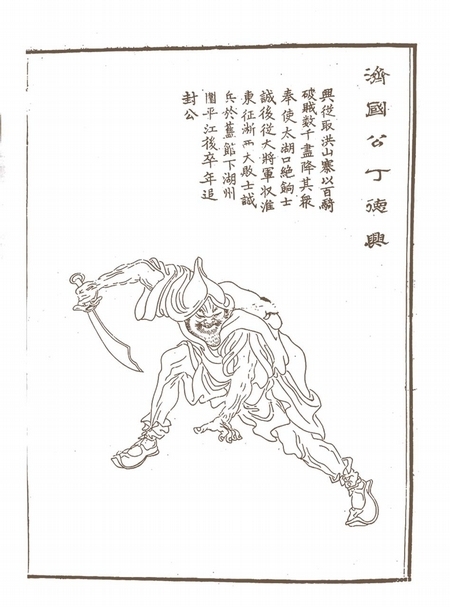 濟國公丁德興
興從取洪山寨以百騎
破賊數千盡降其衆
奉使太湖口絶餉士
誠後從大將軍収淮
東征浙西大敗士誠
兵於舊館下湖州
圍平江後卒年追
封公